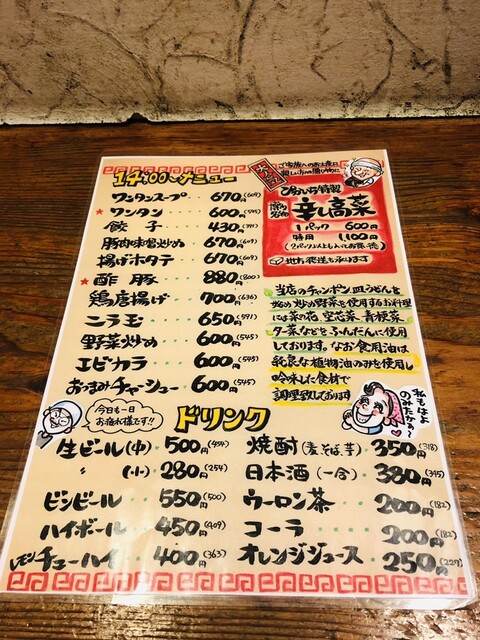 14:00〜メニュー
ワンタンスープ 670円(609)
★ワンタン 600円(545)
餃子 430円(391)
豚肉味噌炒め 670円(609)
揚げホタテ 670円(609)
★酢豚 880円(800)
鶏唐揚げ 700円(636)
ニラ玉 650円(591)
野菜炒め 600円(545)
エビカラ 600円(545)
おつまみチャーシュー 600円(545)
ご家族へのお土産に
親しい方への贈り物に
ぴかいち特製
辛し高菜
1パック 600円
特用 1,100円
地方発送も承ります
当店のチャンポン皿うどんを
始め炒め野菜を使用するお料理
には菜の花、空芯菜、青梗菜
ター菜などをふんだんに使用
しております。なお食用油は
純良な植物油のみを使用し
吟味した食材で
調理致しております
今日も一日
お疲れ様です!!
ドリンク
私もはよ
のみたかぁ〜
生ビール(中) 500円(454)
〃 (小) 280円(254)
ビンビール 550円(500)
ハイボール 450円(409)
レモンチューハイ 400円(363)
焼酎(麦そば芋) 350円(318)
日本酒(一合) 380円(345)
ウーロン茶 200円(182)
コーラ 200円(182)
オレンジジュース 250円(227)